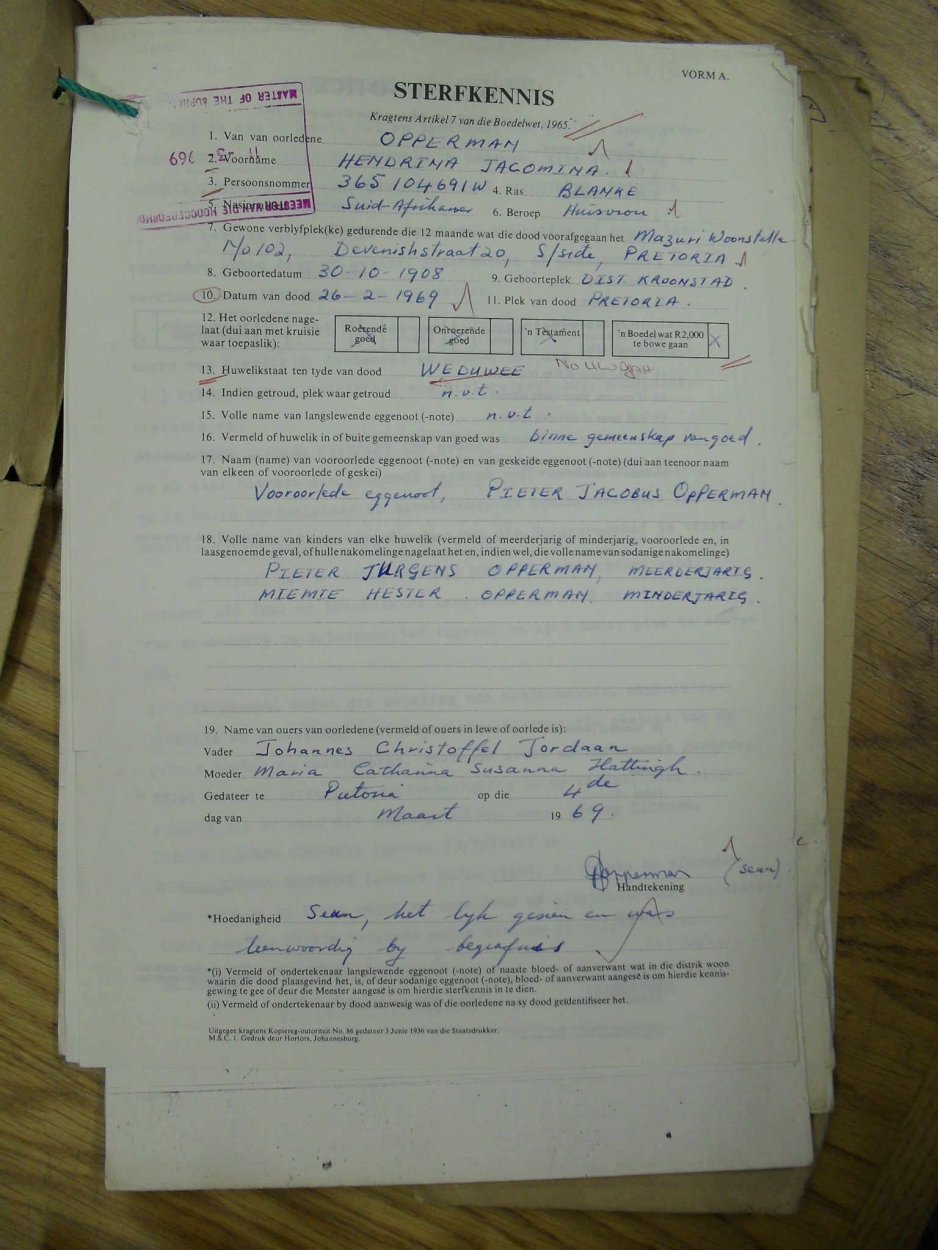 VORM A.
STERFKENNIS
Kragtens Artikel 7 van die Boedelwet, 1965.
MASTER OF THE
1. Van van oorledene OPPERMAN
2. Voorname HENDRINA JACOMINA.
3. Persoonsnommer 365 104691 W 4. Ras BLANKE
5. Suid-Afrikaner 6. Beroep Huisvrou
MEESTER VAN DIE
7. Gewone verblyfplek(ke) gedurende die 12 maande wat die dood voorafgegaan het Mazuri Woonstelle
No 102, Devenishstraat 20, S/side, PRETORIA
8. Geboortedatum 30-10-1908 9. Geboorteplek DIST KROONSTAD.
10. Datum van dood 26-2-1969 11. Plek van dood PRETORIA.
12. Het oorledene nage-
laat (dui aan met kruisie
waar toepaslik):
Roerende
goed
Onroerende
goed
'n Testament
'n Boedel wat R2,000
te bowe gaan X
13. Huwelikstaat ten tyde van dood WEDUWEE
14. Indien getroud, plek waar getroud n.v.t.
15. Volle name van langslewende eggenoot (-note) n.v.t.
16. Vermeld of huwelik in of buite gemeenskap van goed was binne gemeenskap van goed.
17. Naam (name) van vooroorlede eggenoot (-note) en van geskeide eggenoot (-note) (dui aan teenoor naam
van elkeen of vooroorlede of geskei)
Vooroorlede eggenoot, PIETER JACOBUS OPPERMAN
18. Volle name van kinders van elke huwelik (vermeld of meerderjarig of minderjarig, vooroorlede en, in
laasgenoemde geval, of hulle nakomelinge nagelaat het en, indien wel, die volle name van sodanige nakomelinge)
PIETER JURGENS OPPERMAN, MEERDERJARIG.
MIEMIE HESTER OPPERMAN MINDERJARIG.
19. Name van ouers van oorledene (vermeld of ouers in lewe of oorlede is):
Vader Johannes Christoffel Jordaan
Moeder Maria Catharina Susanna Hattingh.
Gedateer te Pretoria op die 4de
dag van Maart 19 69.
Opperman (seun)
Handtekening
*Hoedanigheid Seun, het lyk gesien en was
teenwoordig by begrafnis
*(i) Vermeld of ondertekenaar langslewende eggenoot (-note) of naaste bloed- of aanverwant wat in die distrik woon
waarin die dood plaasgevind het, is, of deur sodanige eggenoot (-note), bloed- of aanverwant aangesê is om hierdie kennis-
gewing te gee of deur die Meester aangesê is om hierdie sterfkennis in te dien.
(ii) Vermeld of ondertekenaar by dood aanwesig was of die oorledene na sy dood geïdentifiseer het.
Uitgegee kragtens Kopiereg-outoriteit No. 86 gedateer 3 Junie 1936 van die Staatsdrukker.
M.S.C. 1. Gedruk deur Hortors, Johannesburg.